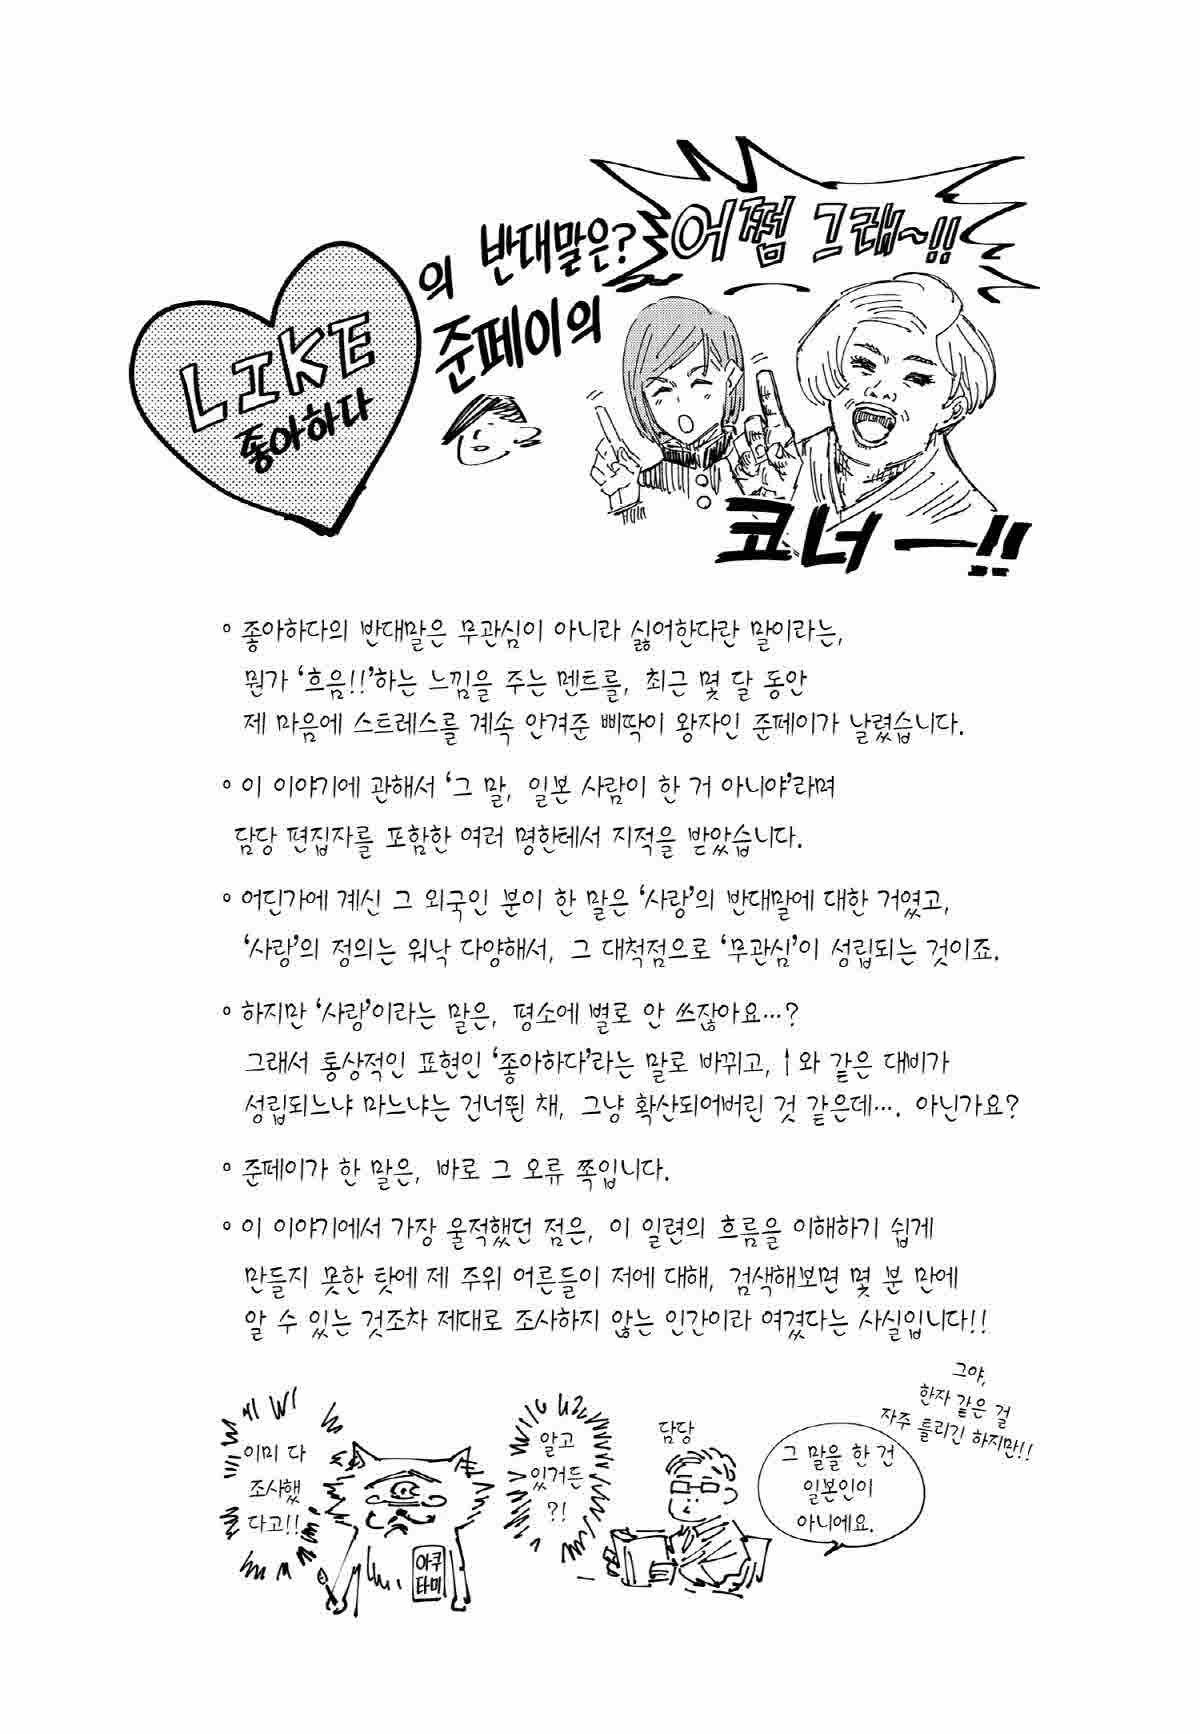 어쩜 그래~!!
LIKE
좋아하다
의 반대말은?
준페이의
코너ー!!
◦ 좋아하다의 반대말은 무관심이 아니라 싫어한다란 말이라는,
뭔가 ‘흐음!!’하는 느낌을 주는 멘트를, 최근 몇 달 동안
제 마음에 스트레스를 계속 안겨준 삐딱이 왕자인 준페이가 날렸습니다.
◦ 이 이야기에 관해서 ‘그 말, 일본 사람이 한 거 아니야’라며
담당 편집자를 포함한 여러 명한테서 지적을 받았습니다.
◦ 어딘가에 계신 그 외국인 분이 한 말은 ‘사랑’의 반대말에 대한 거였고,
‘사랑’의 정의는 워낙 다양해서, 그 대척점으로 ‘무관심’이 성립되는 것이죠.
◦ 하지만 ‘사랑’이라는 말은, 평소에 별로 안 쓰잖아요…?
그래서 통상적인 표현인 ‘좋아하다’라는 말로 바뀌고, ↑와 같은 대비가
성립되느냐 마느냐는 건너뛴 채, 그냥 확산되어버린 것 같은데…. 아닌가요?
◦ 준페이가 한 말은, 바로 그 오류 쪽입니다.
◦ 이 이야기에서 가장 울적했던 점은, 이 일련의 흐름을 이해하기 쉽게
만들지 못한 탓에 제 주위 어른들이 저에 대해, 검색해보면 몇 분 만에
알 수 있는 것조차 제대로 조사하지 않는 인간이라 여겼다는 사실입니다!!
이미 다
조사했
다고!!
아쿠
타미
알고
있거든
?!
담당
그 말을 한 건
일본인이
아니에요.
그야,
한자 같은 걸
자주 틀리긴 하지만!!